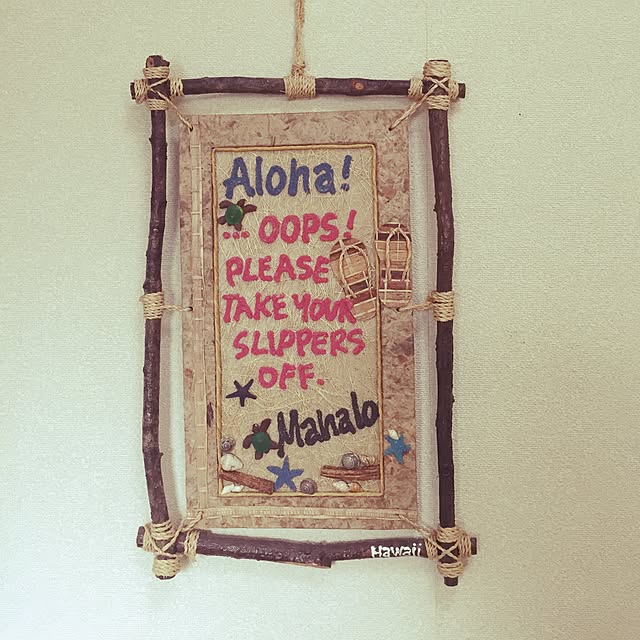 Aloha!
... OOPS!
PLEASE
TAKE YOUR
SLIPPERS
OFF.
Mahalo
Hawaii